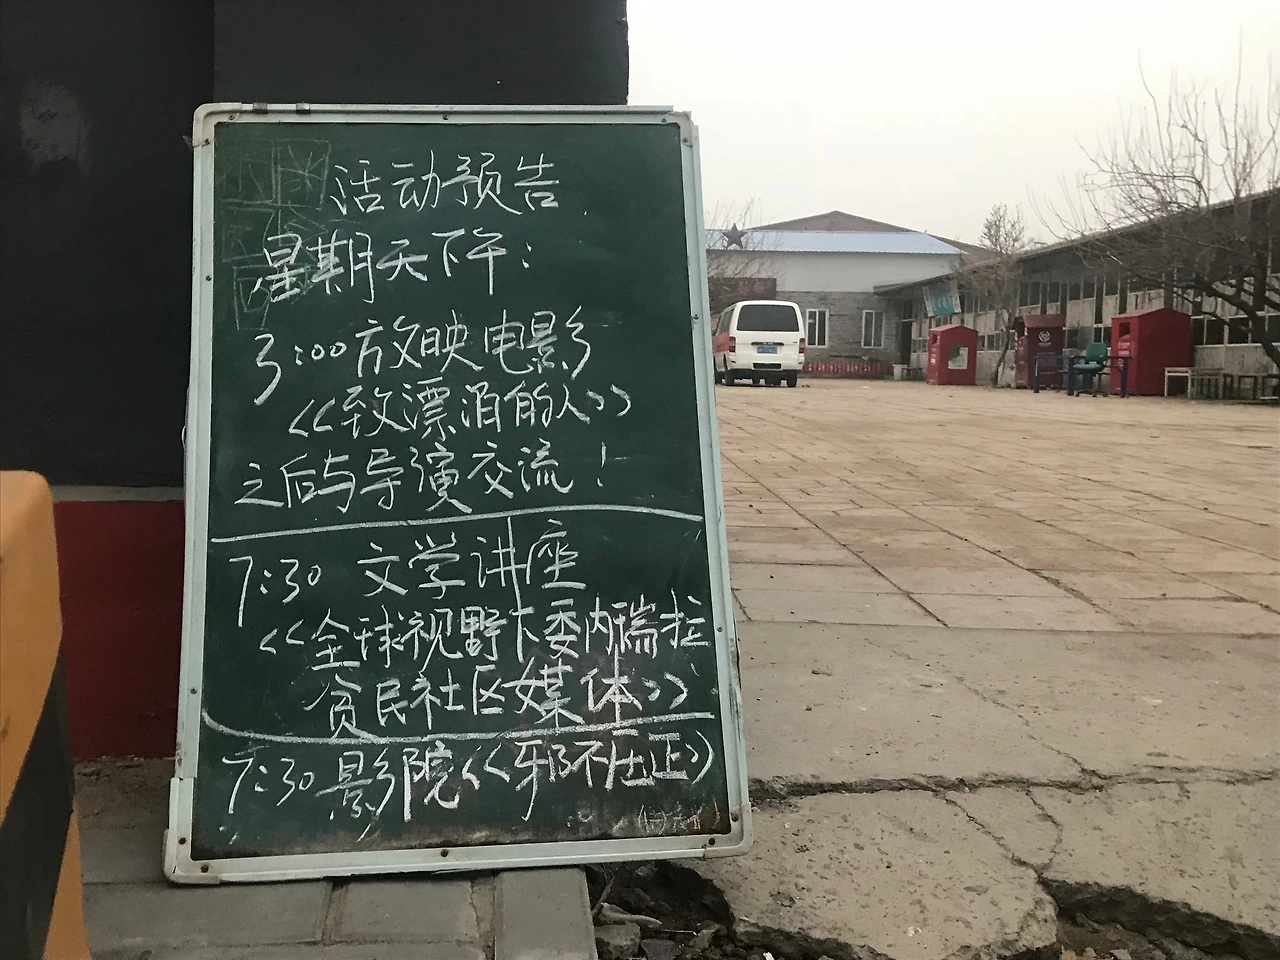 活动预告
星期天下午:
3:00放映电影
<<致漂泊的人>>
之后与导演交流!
7:30 文学讲座
<<全球视野下委内瑞拉
贫民社区媒体>>
7:30影院<<邪不压正>>